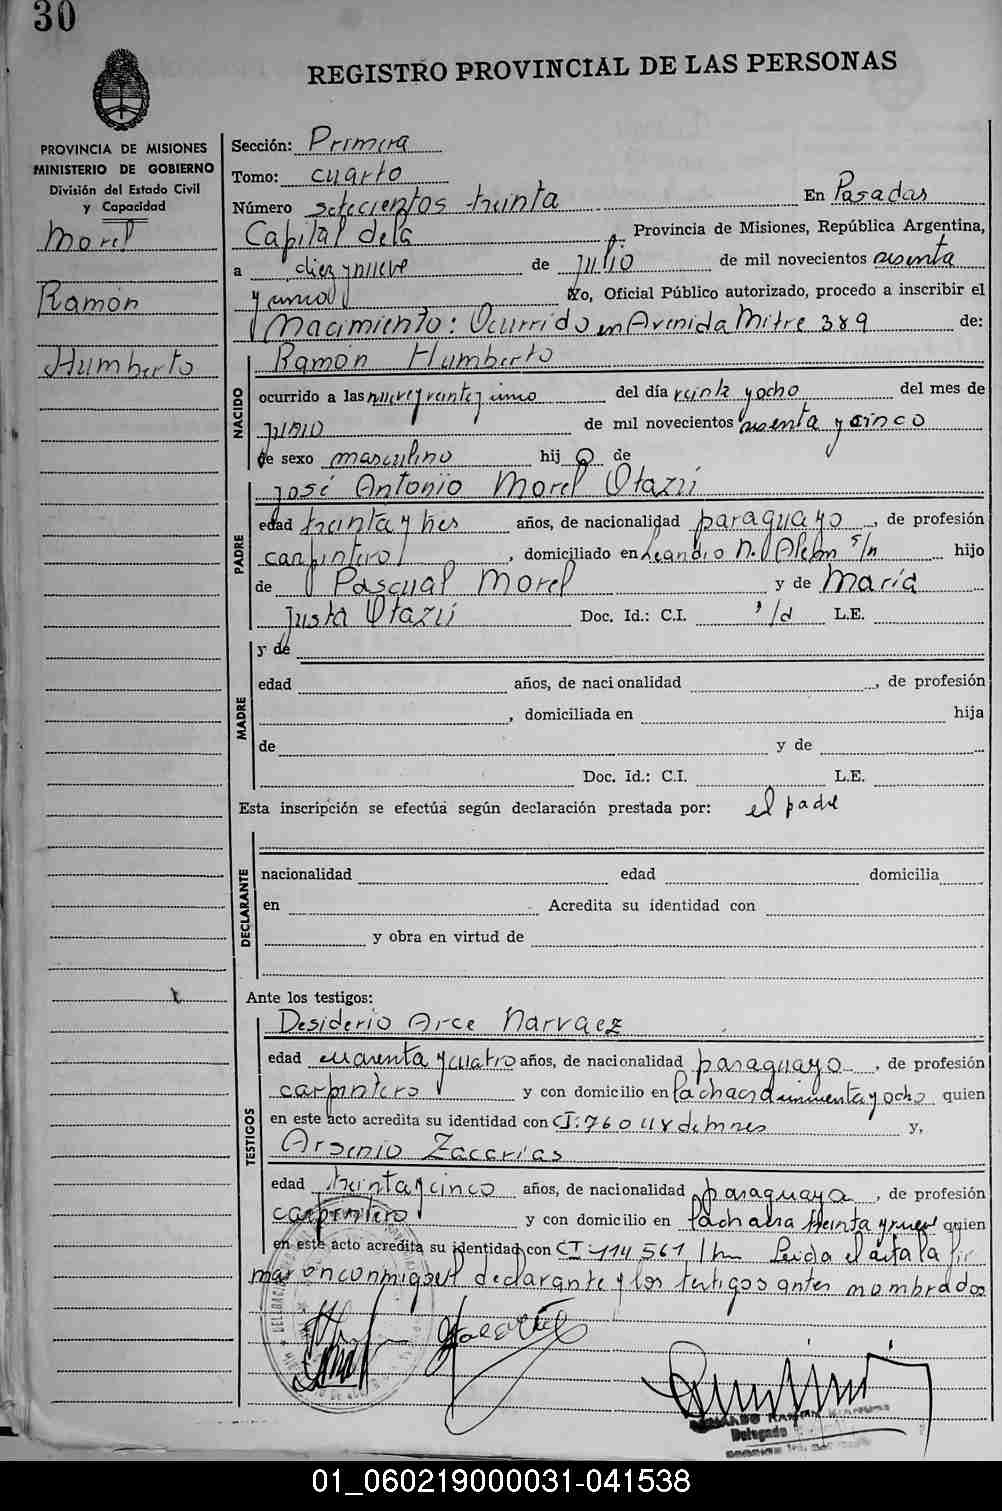 30
REGISTRO PROVINCIAL DE LAS PERSONAS
PROVINCIA DE MISIONES
MINISTERIO DE GOBIERNO
División del Estado Civil
y Capacidad
Morel
Ramón
Humberto
Sección: Primera
Tomo: cuarto
Número setecientos treinta En Posadas
Capital de la Provincia de Misiones, República Argentina,
a diez y nueve de julio de mil novecientos
y uno Yo, Oficial Público autorizado, procedo a inscribir el
Nacimiento: Ocurrido en Avenida Mitre 389 de:
NACIDO
Ramón Humberto
ocurrido a las nueve y veinte y uno del día veinte y ocho del mes de
junio de mil novecientos sesenta y cinco
de sexo masculino hij o de
PADRE
José Antonio Morel Otazú
edad treinta y tres años, de nacionalidad paraguayo, de profesión
carpintero, domiciliado en Leandro N. Alem s/n hijo
de Pascual Morel y de María
Justa Otazú Doc. Id.: C.I. s/d L.E.
MADRE
y de
edad años, de nacionalidad , de profesión
, domiciliada en hija
de y de
Doc. Id.: C.I. L.E.
Esta inscripción se efectúa según declaración prestada por: el padre
DECLARANTE
nacionalidad edad domicilia
en Acredita su identidad con
y obra en virtud de
Ante los testigos:
TESTIGOS
Desiderio Arce Narvaez
edad cuarenta y cuatro años, de nacionalidad paraguayo, de profesión
carpintero y con domicilio en y ocho quien
en este acto acredita su identidad con y,
Arsenio Zacarías
edad treinta y cinco años, de nacionalidad paraguaya, de profesión
carpintero y con domicilio en treinta y nueve quien
en este acto acredita su identidad con CI 114.561 Leida el acta la fir
maron conmigo el declarante y los testigos antes nombrados
Delegado
01_060219000031-041538